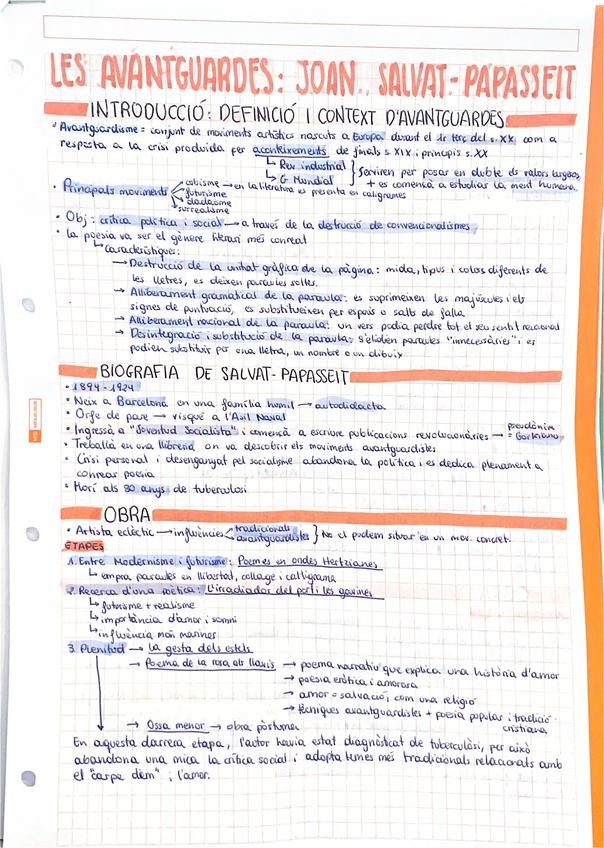 LES AVANTGUARDES: JOAN SALVAT-PAPASSEIT
INTRODUCCIÓ: DEFINICIÓ I CONTEXT D'AVANTGUARDES
Avantguardisme = conjunt de moviments artístics nascuts a Europa durant el 1r terç del s.XX com a
resposta a la crisi produïda per aconteixements de finals s XIX i principis s.XX
↳ Rev industrial
↳ G Mundial } Serviren per posar en dubte els valors burgesos
+ es començà a estudiar la ment humana
• Principals moviments
cubisme → en la literatura es presenta en cal·ligrames
futurisme
dadaisme
surrealisme
• Obj: crítica política i social → a través de la destrucció de convencionalismes
• La poesia va ser el gènere literari més conreat
↳ Característiques:
→ Destrucció de la unitat gràfica de la pàgina: mida, tipus i colors diferents de
les lletres, es deixen paraules soltes.
→ Alliberament gramatical de la paraula: es suprimeixen les majúscules i els
signes de puntuació, es substitueixen per espais o salts de falla
→ Alliberament racional de la paraula: un vers podia perdre tot el seu sentit racional
→ Desintegració i substitució de la paraula: s'elidien paraules "innecessàries" i es
podien substituir per una lletra, un nombre o un dibuix
BIOGRAFIA DE SALVAT-PAPASSEIT
• 1894-1924
• Neix a Barcelona en una família humil → autodidacta
• Orfe de pare → visqué a l'Asil Naval
• Ingressà a "Joventud Socialista" i començà a escriure publicacions revolucionàries → pseudònim
= Gorkiano
• Treballà en una llibreria on va descobrir els moviments avantguardistes
• Crisi personal i desenganyat pel socialisme abandona la política i es dedica plenament a
conrear poesia
• Morí als 30 anys de tuberculosi
OBRA
• Artista eclèctic → influències
tradicionals
avantguardistes } No el podem situar en un mov. concret.
ETAPES
1. Entre Modernisme i futurisme: Poemes en ondes Hertzianes
↳ empra paraules en llibertat, collage i cal·ligrama
2. Recerca d'una poètica: L'irradiador del port i les gavines
↳ futurisme + realisme
↳ importància d'amor i somni
↳ influència món mariner
3. Plenitud → La gesta dels estels
→ Poema de la rosa als llavis → poema narratiu que explica una història d'amor
→ poesia eròtica i amorosa
→ amor = salvació, com una religió
→ tècniques avantguardistes + poesia popular i tradició
cristiana
→ Ossa menor → obra pòstuma
En aquesta darrera etapa, l'autor havia estat diagnòsticat de tuberculòsi, per això
abandona una mica la crítica social i adopta temes més tradicionals relacionats amb
el "carpe diem" i l'amor.